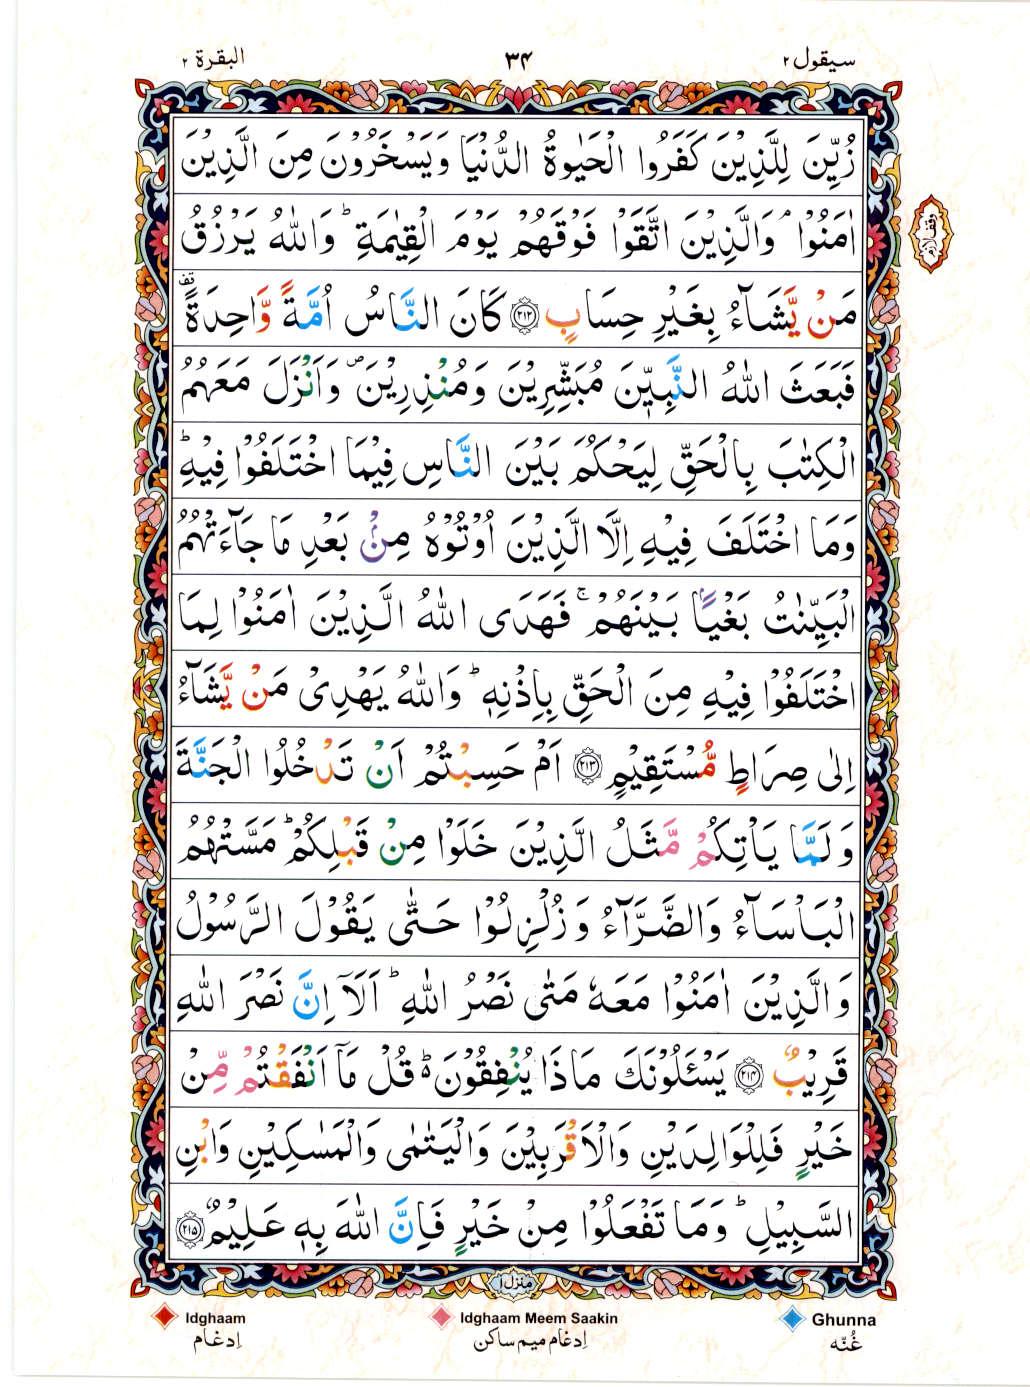 سيقول ٢
٣٤
البقرة ٢
زُيِّنَ لِلَّذِيْنَ كَفَرُوا الْحَيٰوةُ الدُّنْيَا وَيَسْخَرُوْنَ مِنَ الَّذِيْنَ
اٰمَنُوْا ۘ وَالَّذِيْنَ اتَّقَوْا فَوْقَهُمْ يَوْمَ الْقِيٰمَةِ ؕ وَاللّٰهُ يَرْزُقُ
وقف لازم
مَنْ يَّشَآءُ بِغَيْرِ حِسَابٍ ﴿۲۱۲﴾ كَانَ النَّاسُ اُمَّةً وَّاحِدَةً ۫
فَبَعَثَ اللّٰهُ النَّبِيّٖنَ مُبَشِّرِيْنَ وَمُنْذِرِيْنَ ۪ وَاَنْزَلَ مَعَهُمُ
الْكِتٰبَ بِالْحَقِّ لِيَحْكُمَ بَيْنَ النَّاسِ فِيْمَا اخْتَلَفُوْا فِيْهِ ؕ
وَمَا اخْتَلَفَ فِيْهِ اِلَّا الَّذِيْنَ اُوْتُوْهُ مِنْۢ بَعْدِ مَا جَآءَتْهُمُ
الْبَيِّنٰتُ بَغْيًۢا بَيْنَهُمْ ۚ فَهَدَى اللّٰهُ الَّذِيْنَ اٰمَنُوْا لِمَا
اخْتَلَفُوْا فِيْهِ مِنَ الْحَقِّ بِاِذْنِهٖ ؕ وَاللّٰهُ يَهْدِىْ مَنْ يَّشَآءُ
اِلٰى صِرَاطٍ مُّسْتَقِيْمٍ ﴿۲۱۳﴾ اَمْ حَسِبْتُمْ اَنْ تَدْخُلُوا الْجَنَّةَ
وَلَمَّا يَاْتِكُمْ مَّثَلُ الَّذِيْنَ خَلَوْا مِنْ قَبْلِكُمْ ؕ مَسَّتْهُمُ
الْبَاْسَآءُ وَالضَّرَّآءُ وَزُلْزِلُوْا حَتّٰى يَقُوْلَ الرَّسُوْلُ
وَالَّذِيْنَ اٰمَنُوْا مَعَهٗ مَتٰى نَصْرُ اللّٰهِ ؕ اَلَاۤ اِنَّ نَصْرَ اللّٰهِ
قَرِيْبٌ ﴿۲۱۴﴾ يَسْئَلُوْنَكَ مَاذَا يُنْفِقُوْنَ ؕ قُلْ مَاۤ اَنْفَقْتُمْ مِّنْ
خَيْرٍ فَلِلْوَالِدَيْنِ وَالْاَقْرَبِيْنَ وَالْيَتٰمٰى وَالْمَسٰكِيْنِ وَابْنِ
السَّبِيْلِ ؕ وَمَا تَفْعَلُوْا مِنْ خَيْرٍ فَاِنَّ اللّٰهَ بِهٖ عَلِيْمٌ ﴿۲۱۵﴾
منزل ۱
Idghaam
Idghaam Meem Saakin
Ghunna
اِدغام
اِدغام ميم ساكن
غُنّه